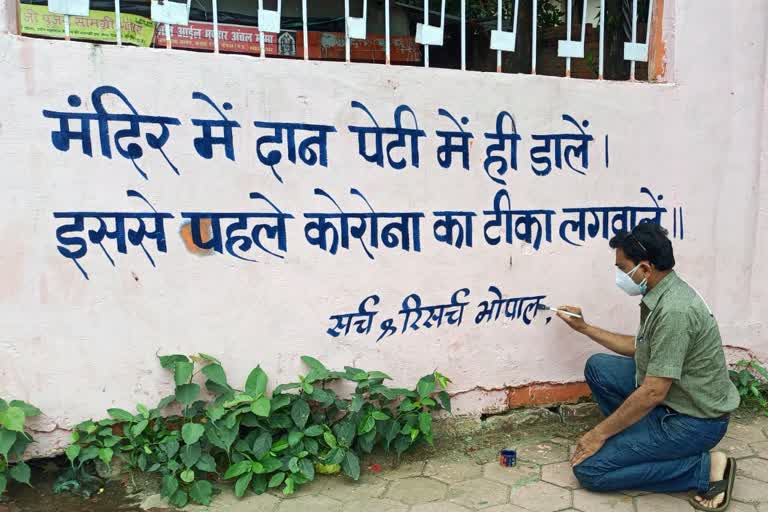 मंदिर में दान पेटी में ही डालें।
इससे पहले कोरोना का टीका लगवालें॥
सर्च & रिसर्च भोपाल.